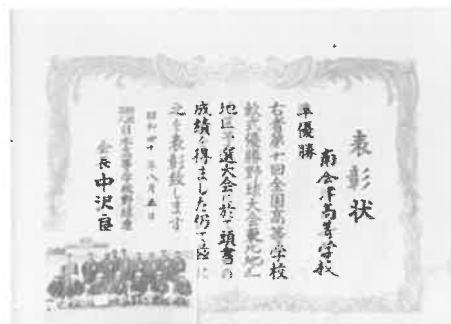 表彰状
南会津高等学校
準優勝
右者第十回全国高等学校
軟式優勝野球大会東北地区
地区予選大会に於て頭書の
成績を得ました仍て茲に
之を表彰致します
昭和四十年八月五日
日本高等学校野球連
会長中沢良